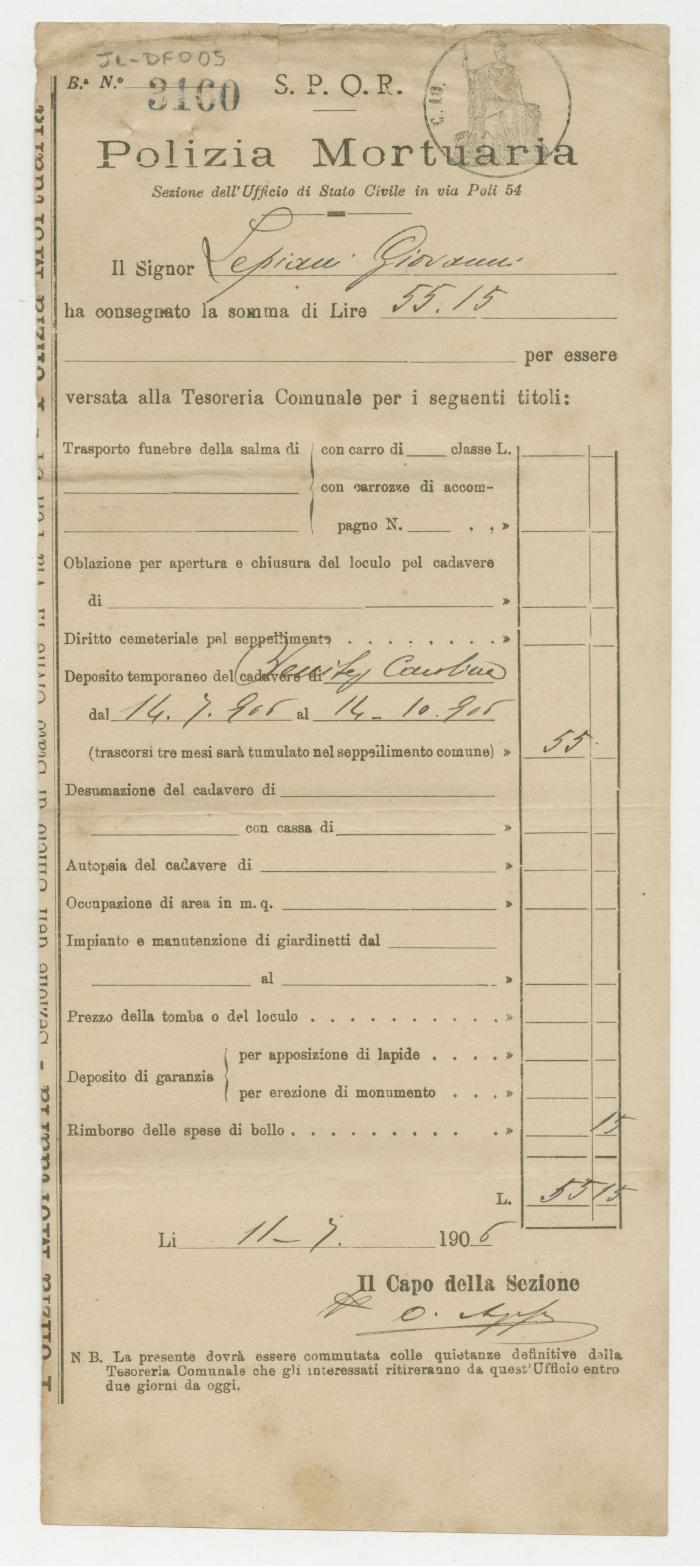 JL-DF005
B.ª N.º 3160 S. P. Q. R.
C. 10.
Polizia Mortuaria
Sezione dell'Ufficio di Stato Civile in via Poli 54
Il Signor Lepiani Giovanni
ha consegnato la somma di Lire 55.15
per essere
versata alla Tesoreria Comunale per i seguenti titoli:
Trasporto funebre della salma di con carro di classe L.
con carrozze di accom-
pagno N. . . »
Oblazione per apertura e chiusura del loculo pel cadavere
di »
Diritto cemeteriale pel seppellimento . . . . . . . »
Deposito temporaneo del cadavere di Carolina
dal 14. 7. 906 al 14 - 10. 906
(trascorsi tre mesi sarà tumulato nel seppellimento comune) » 55
Desumazione del cadavere di
con cassa di »
Autopsia del cadavere di »
Occupazione di area in m. q. »
Impianto e manutenzione di giardinetti dal
al »
Prezzo della tomba o del loculo . . . . . . . . . . »
Deposito di garanzia per apposizione di lapide . . . . »
per erezione di monumento . . . »
Rimborso delle spese di bollo . . . . . . . . . . » 15
L. 55 15
Li 11 - 7. 1906
Il Capo della Sezione
N. B. La presente dovrà essere commutata colle quietanze definitive dalla
Tesoreria Comunale che gli interessati ritireranno da quest'Ufficio entro
due giorni da oggi.
Polizia Mortuaria - Sezione dell'Ufficio di Stato Civile in Via Poli 54 - Polizia Mortuaria